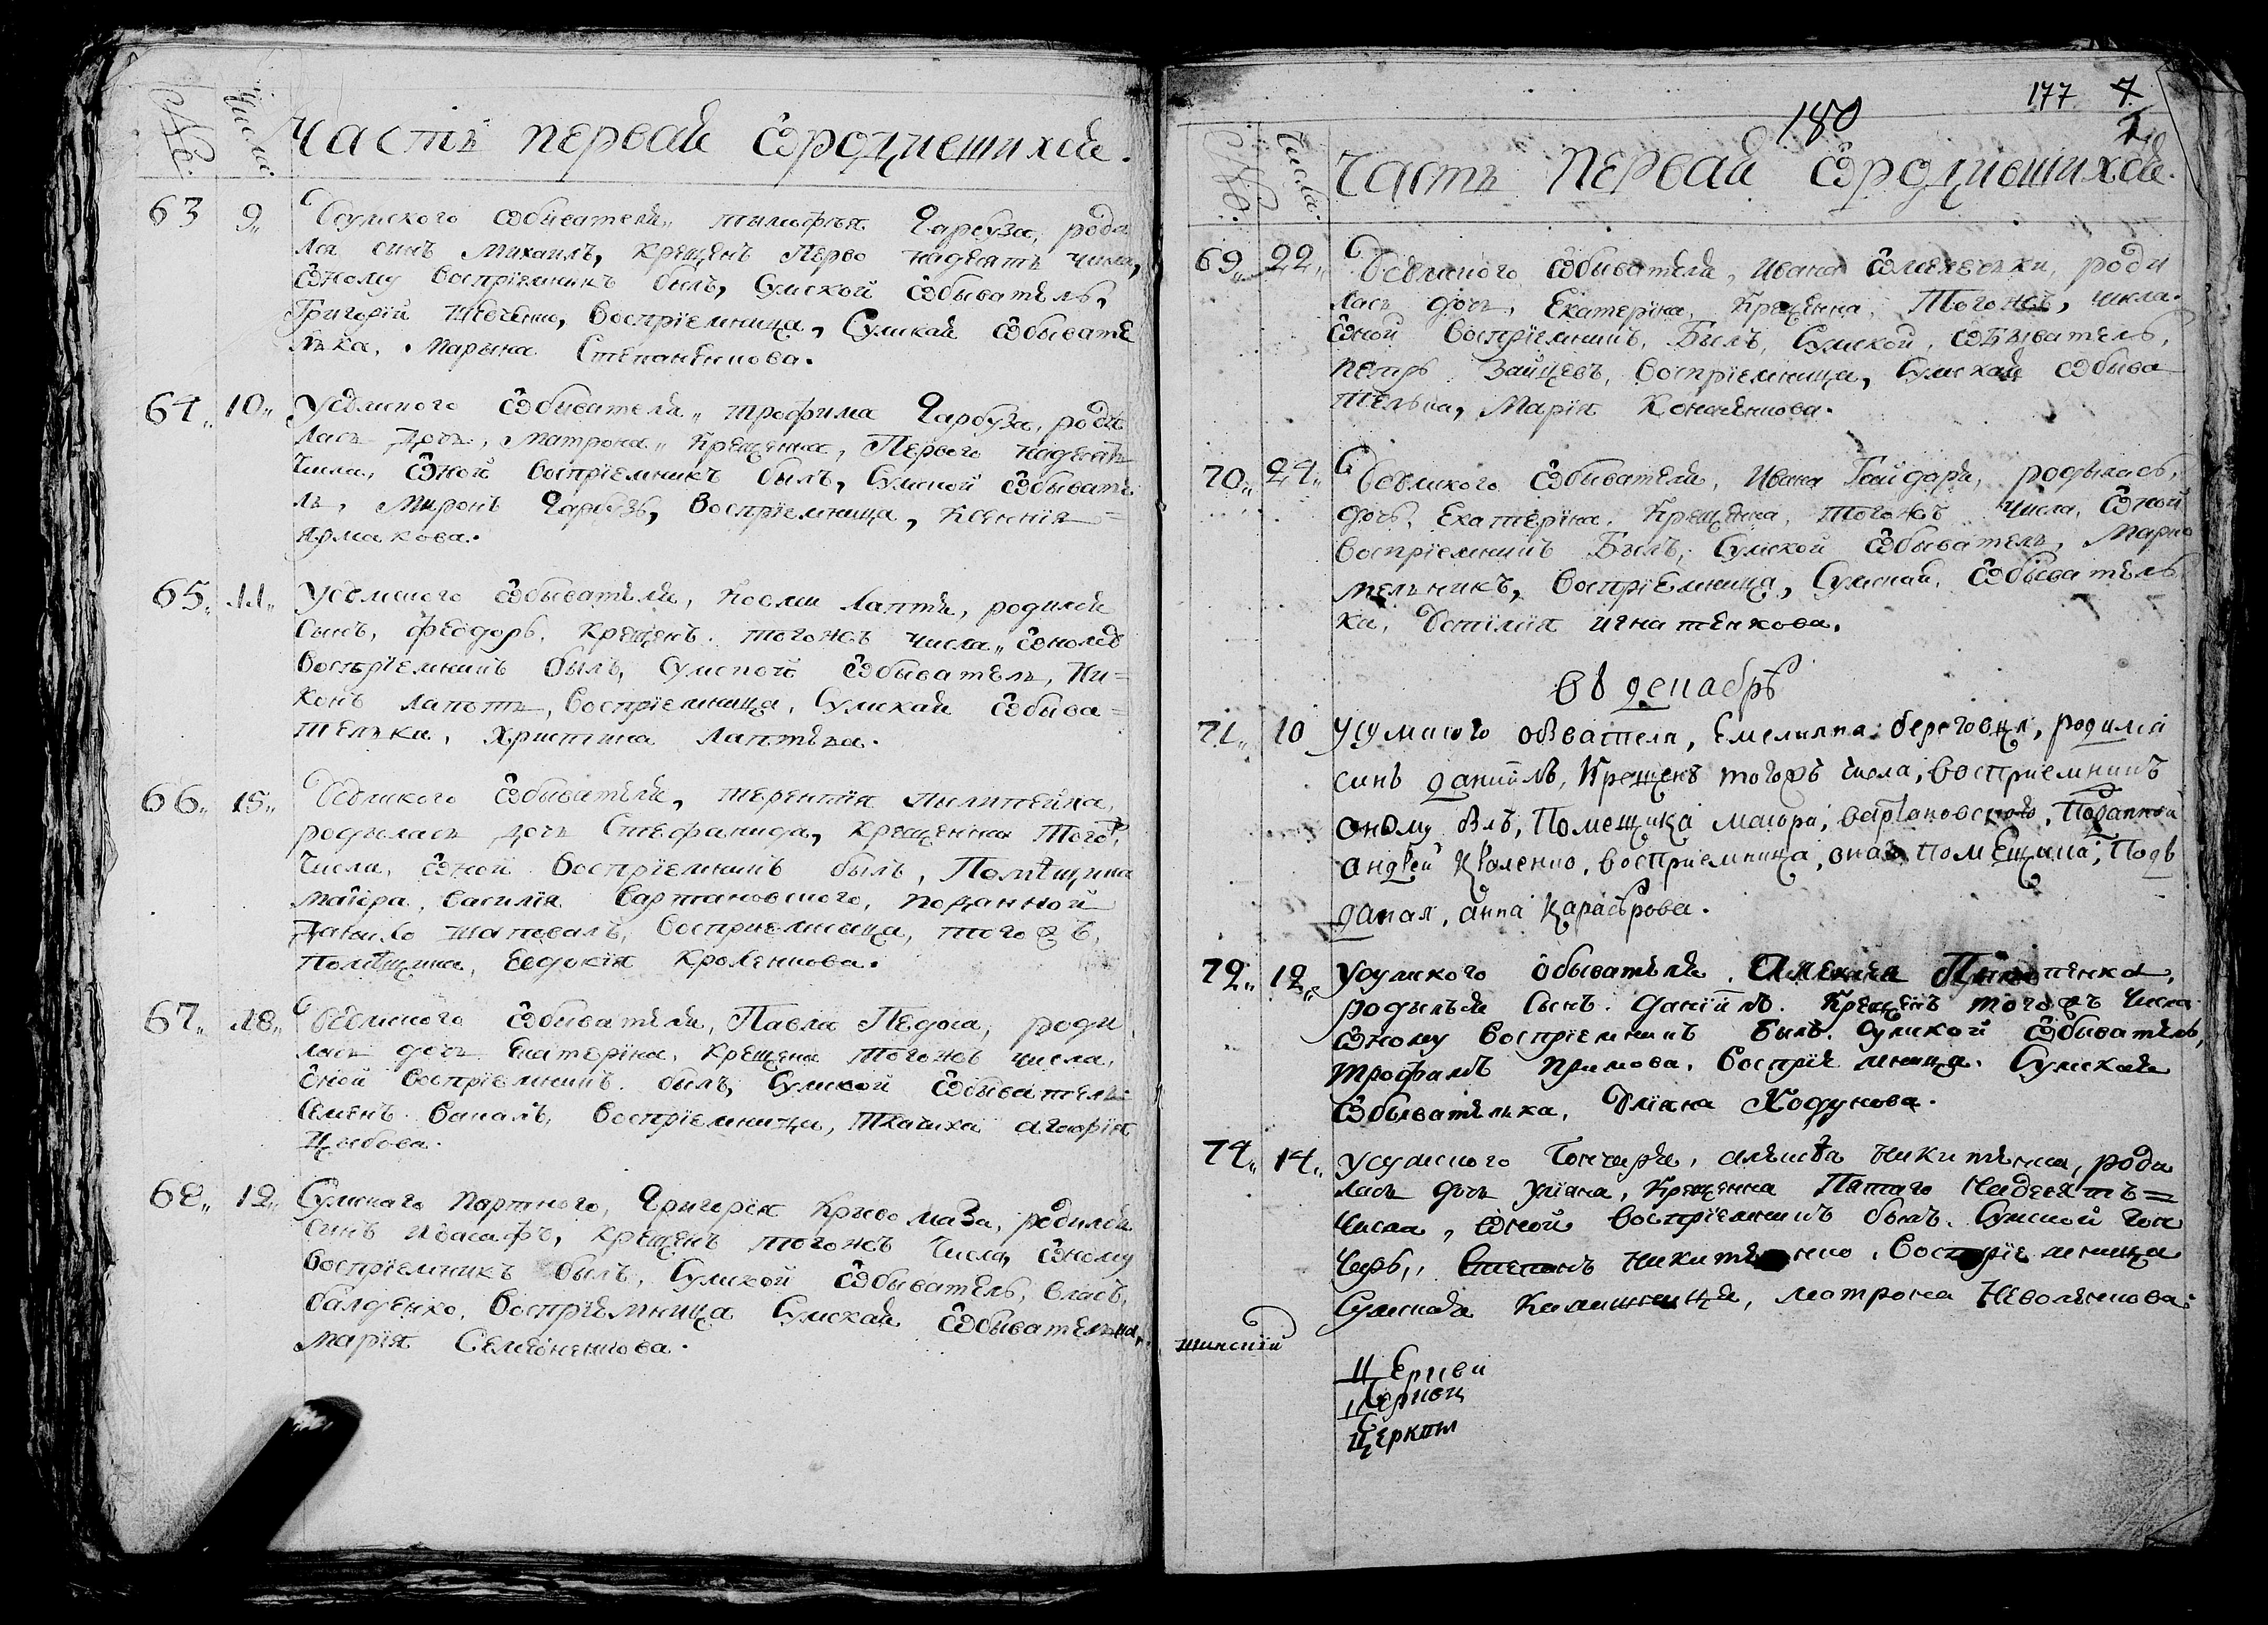 №
Числа
Часть первая ѡродившихся.
63 9 Усумского ѡбывателя тымофѣя Гарбуза, роди
лся синъ Михаилъ, крещенъ Перво надесять числа,
ѡному воспрїемникъ былъ, Сумской ѡбыватель,
Григорїй Шевченко, воспрїемница, Сумская ѡбывате
лка, Марына Степаненкова.
64 10 Усумского ѡбывателя трофима Гарбуза, роди
лась дочь, матрона крещенна, Первого надесять
числа, ѡной воспрїемникъ былъ, Сумской ѡбывате
ль, Миронъ Гарбузъ, воспрїемница, Ксеннїя
Ярмакова.
65 11 Усумского ѡбывателя, Косми Лаптя, родился
сынъ, феѡдоръ, крещенъ тогожъ числа ѡному
воспрїемникъ былъ, Сумской ѡбыватель, Ни=
конъ лапоть, воспрїемница, Сумская ѡбыва=
телька, Христина Лаптѣва.
66 15 Усумского ѡбывателя, терентїя пылыпейка,
родылась дочь Стефанида, крещенна того
числа, ѡной воспрїемникъ былъ, Помѣщика
маїора, василїя вартановского, поданной
данило шаповалъ, воспрїемница, тогожъ,
Помѣщика, Евдокїя Кроленкова.
67 18 Усумского ѡбывателя, Павла Педоса, роди
лась дочь Екатерїна, крещена тогожъ числа,
ѡной воспрїемникъ былъ, Сумской ѡбыватель
Семенъ воспрїемница, Ткачиха агафїя
Цыбова.
68 19 Сумскаго Партного, Григорїя Криво маза, родился
синъ Иоасафъ, крещенъ тогожъ числа, ѡному
воспрїемникъ былъ, Сумской ѡбыватель, власъ,
балденко, воспрїемница Сумская ѡбывателка,
Марїя Семѡненкова.
177 7
180
№
Числа
Часть первая ѡродившихся.
69 22 Усумского ѡбывателя, Ивана ѡмелечки, роди
лась дочь, Екатерїна, крещенна, Тогожъ, числа.
ѡной воспрїемникъ, Былъ, Сумской, ѡбыватель,
петръ Зайцевъ, воспрїемница, Сумская ѡбыва
телька, Марїя Кононенкова.
70 24 Усумского ѡбывателя, Ивана Гайдаря, родылась,
дочь, Екатерїна, крещенна, тогожъ числа, ѡной
воспрїемникъ Былъ, Сумской ѡбыватель, Марко
мельникъ, воспрїемница, Сумская, ѡбыватель
ка, игнатенкова.
Въ декабрѣ
71 10 Усумского обвателя, Емельяна береговця, родился
синъ данїилъ, крещенъ тогожъ числа, воспрїемникъ
оному блъ, Помещика маїора, вартановского, Поданной
андрей Коваленко, воспрїемница, оного помещика, Подъ
даная, анна
72 12 Усумкого обывателя
родылься сынъ данїилъ. крещенъ тогожъ числа
ѡному воспрїемникъ былъ Сумской ѡбыватель,
трофимъ Примова, воспрїемница Сумская
ѡбывателька, Улїяна Ходунова.
74 14 Усумского Гончаря, алексѣя никитенка, роди
лась дочь улїяна, крещенна Пятаго надесять=
числа, ѡной воспрїемникъ былъ Сумской гон
чаръ, Степанъ никитенко, воспрїемница
Сумская Калашница, мотрона Неволенкова.
шинскїй
Церкви
Церкви
Церкви